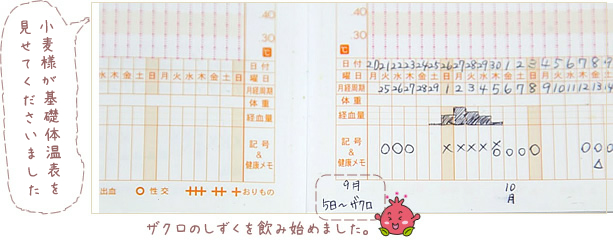 小麦様が基礎体温表を
見せてくださいました
.40
.30
℃
水 木 金 土 日 月 火 水 木 金 土 日
出血 ○性交 卌 卄 + おりもの
.40
.30
℃
日付 20 21 22 23 24 25 26 27 28 29 30 1 2 3 4 5 6 7 8 9
曜日 月 火 水 木 金 土 日 月 火 水 木 金 土 日 月 火 水 木 金 土
月経周期 25 26 27 28 29 1 2 3 4 5 6 7 8 9 10 11 12 13 14
体重
経血量
記号
&
健康メモ
○○○ ×××××○○○○ ○○
△
9月
5日〜ザクロ
10
月
ザクロのしずくを飲み始めました。